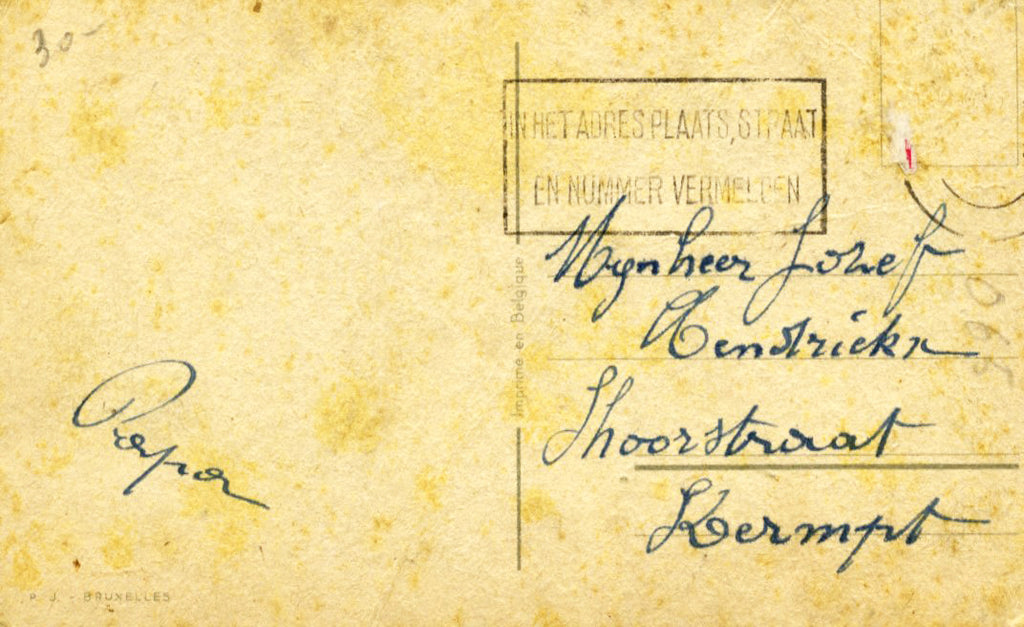 30-
IN HET ADRES PLAATS, STRAAT
EN NUMMER VERMELDEN
Mynheer Jozef
Hendrickx
Papa
Imprimé en Belgique
straat
Kermpt
P. J. - BRUXELLES